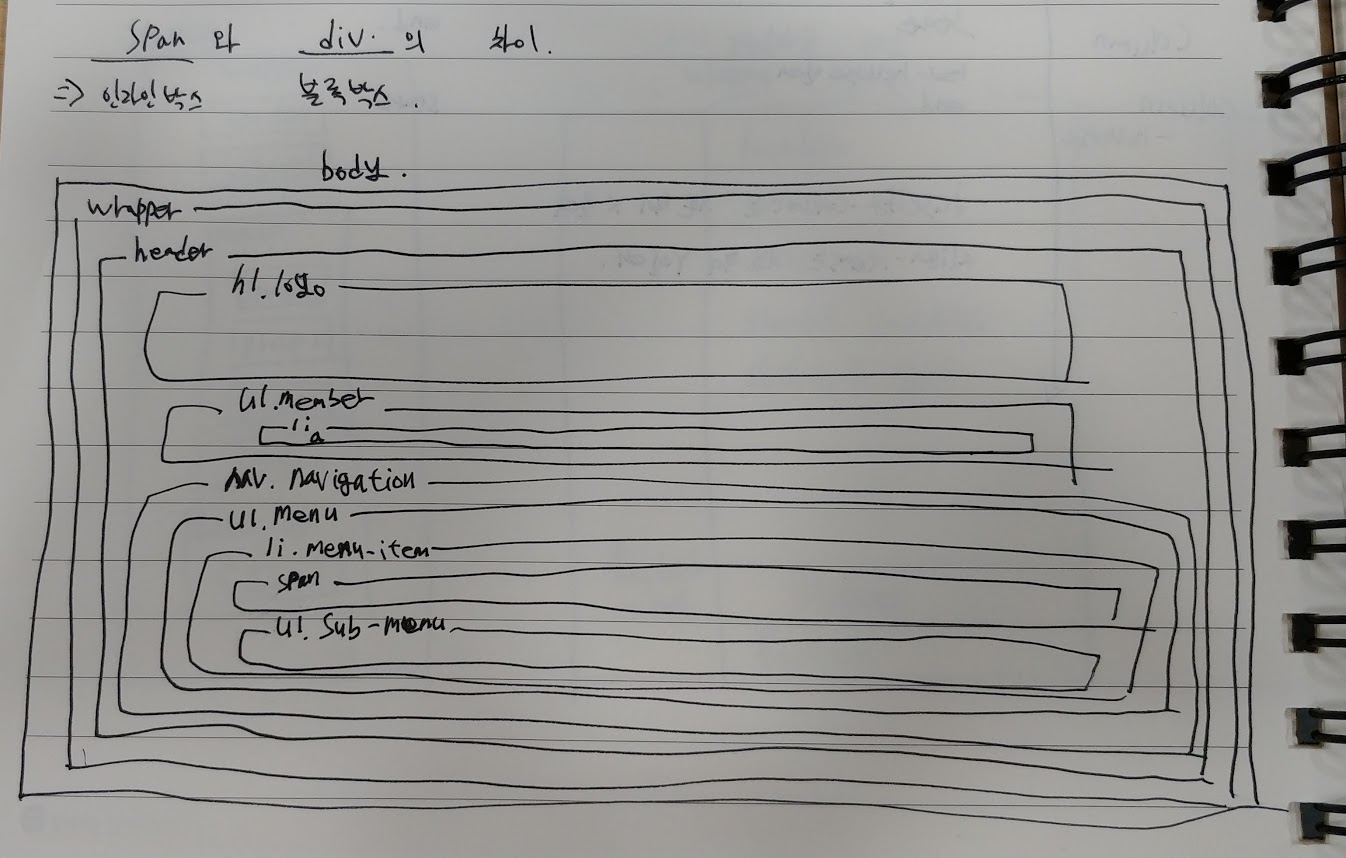 span 와 div. 의 차이.
=> 인라인박스 블록박스..
body.
wrapper
header
h1.logo
ul.member
li
a
nav. navigation
ul. menu
li. menu-item
span
ul. sub-menu